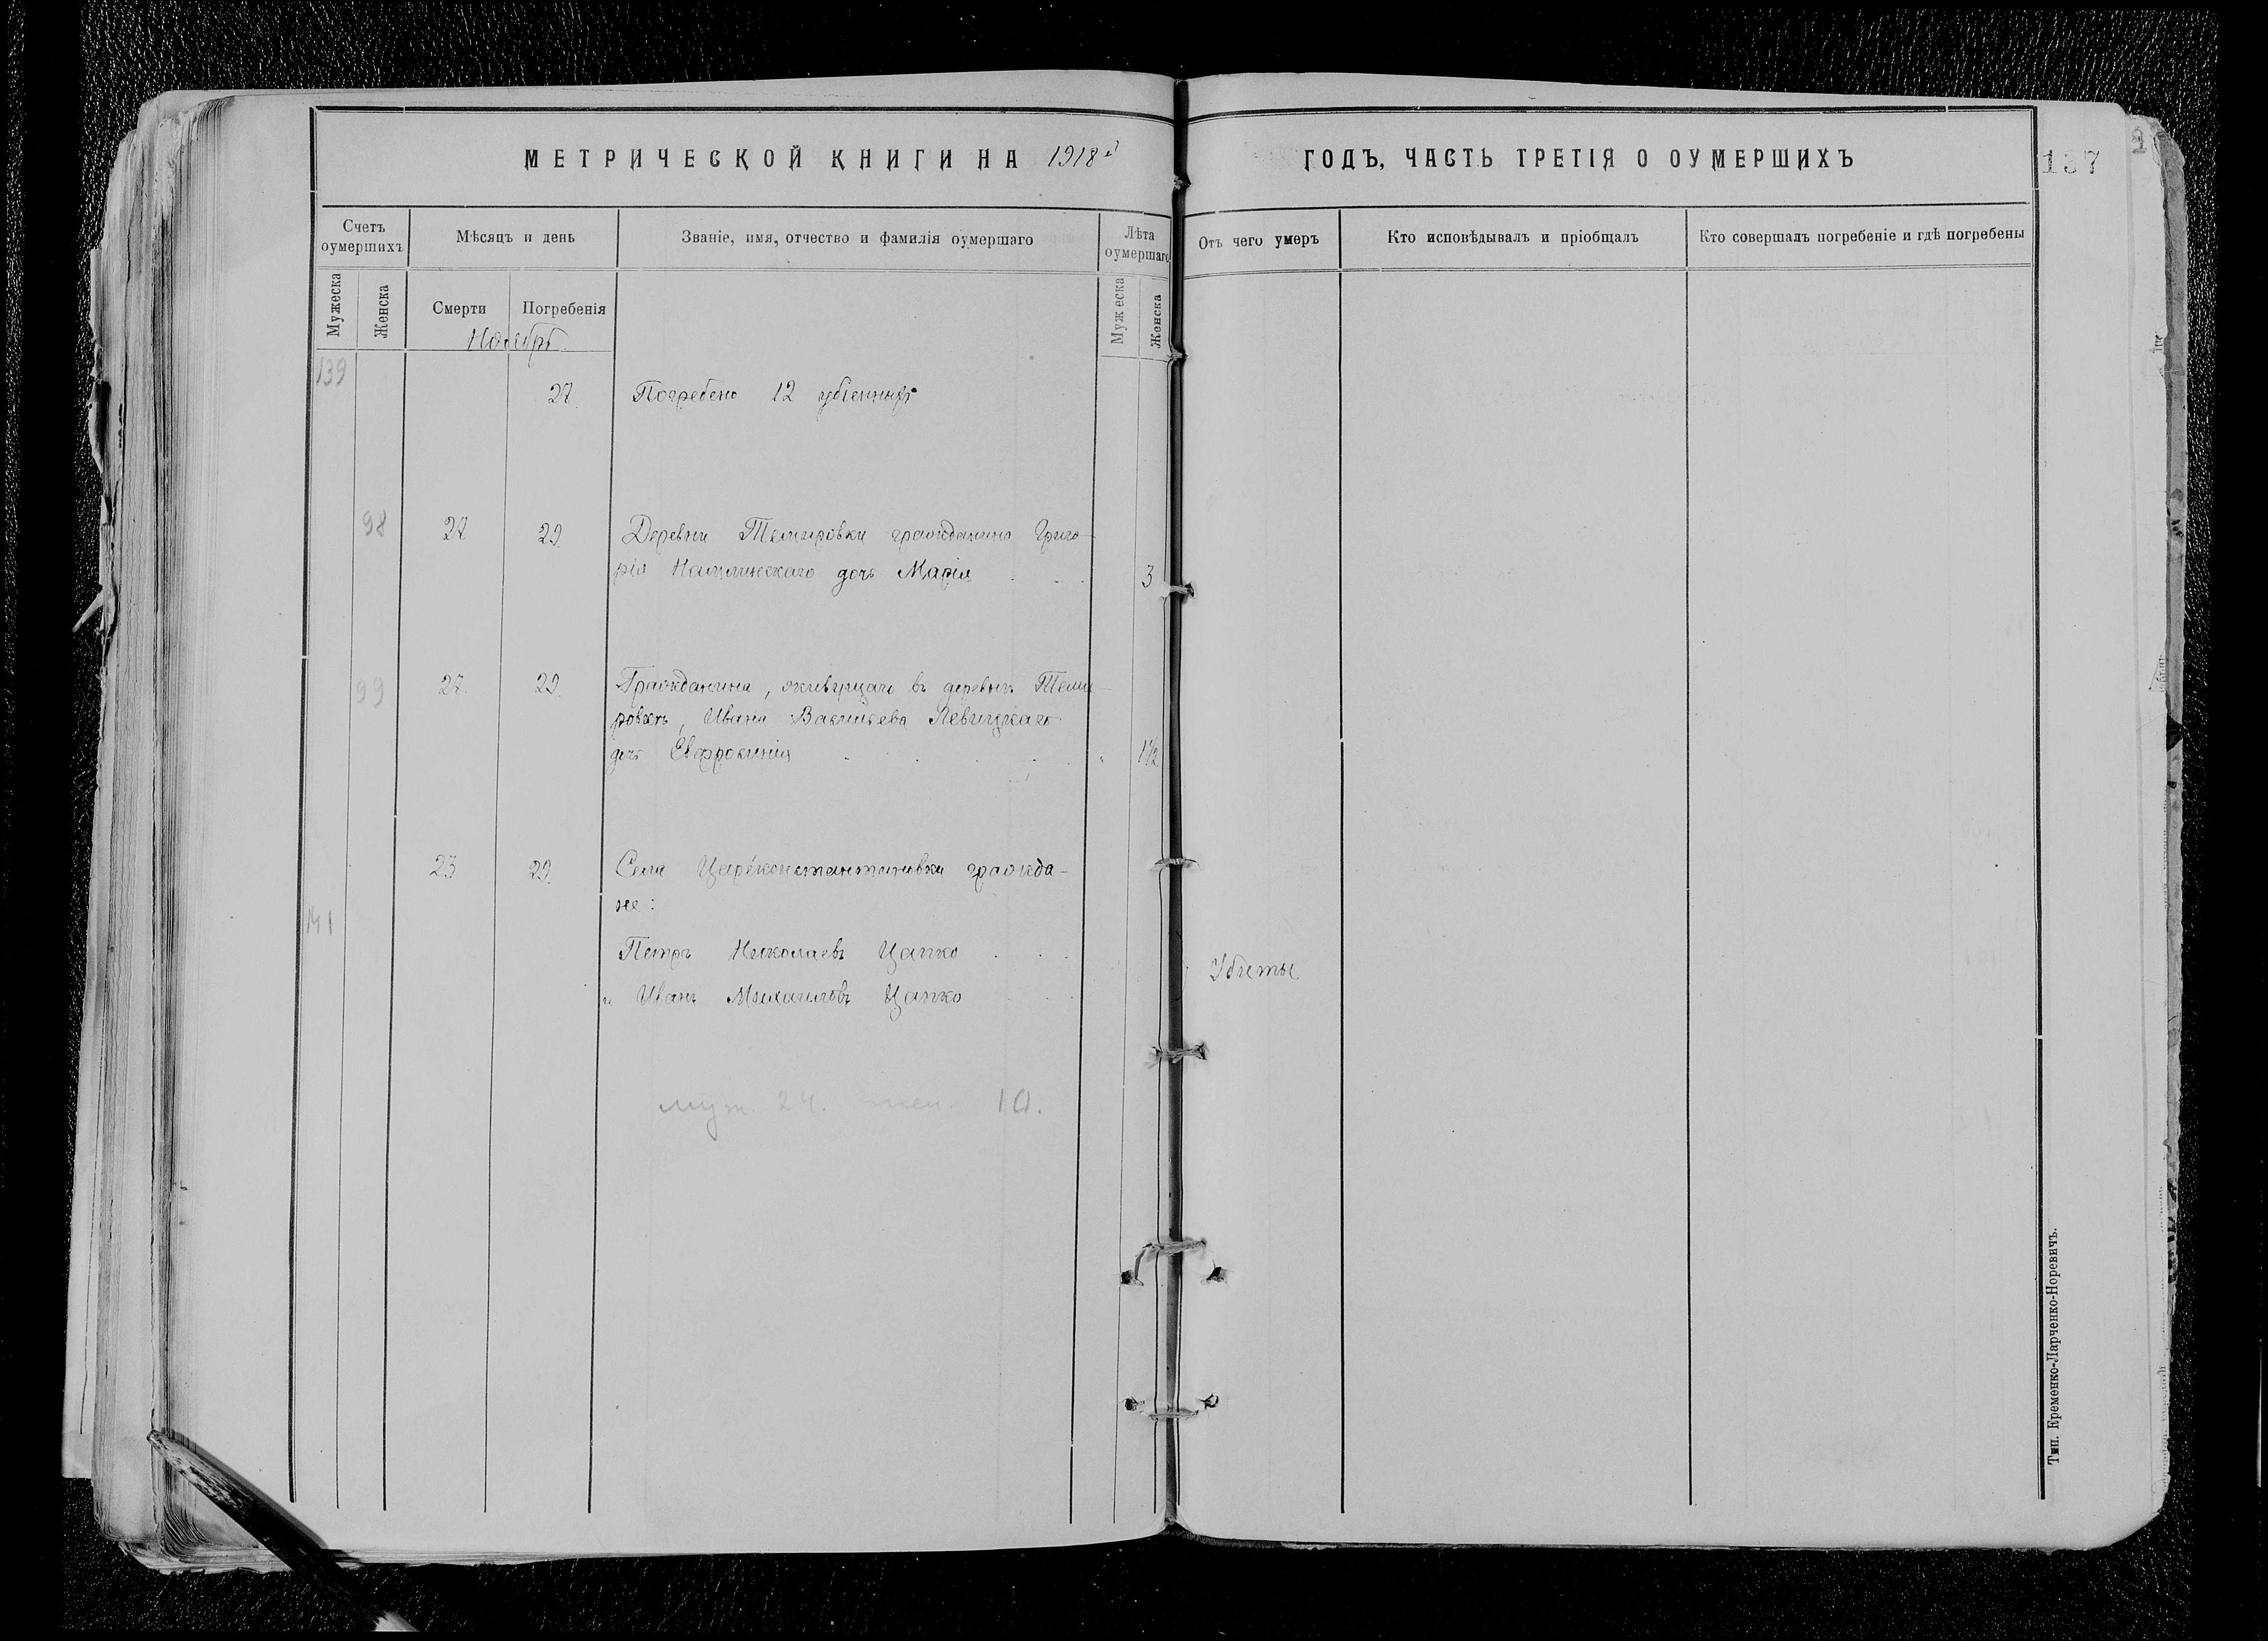 МЕТРИЧЕСКОЙ КНИГИ НА 1918й ГОДЪ, ЧАСТЬ ТРЕТІЯ О ОУМЕРШИХЪ
137
Счетъ оумершихъ
Мѣсяцъ и день
Званіе, имя, отчество и фамилія оумершаго
Лѣта оумершаго
Отъ чего умеръ
Кто исповѣдывалъ и пріобщалъ
Кто совершалъ погребеніе и гдѣ погребены
Мужеска
Женска
Смерти
Погребенія
Мужеска
Женска
Ноябрь
139
27. Погребено 12 убіенныхъ
98 27 29. Деревни Темировки гражданина Григо-
рія дочь Марія 3
99 27. 29. Гражданина, живущаго въ деревнѣ Теми-
ровкѣ, Ивана Васильева Левицкаго
дочь Евфросинія 1 1/2
23 29. Села Цареконстантиновки гражда-
не:
141
Петръ Николаевъ Цапко
Убиты
и Иванъ Михаиловъ Цапко
муж. 24. жен. 10.
Тип. Еременко-Ларченко-Норевичъ.